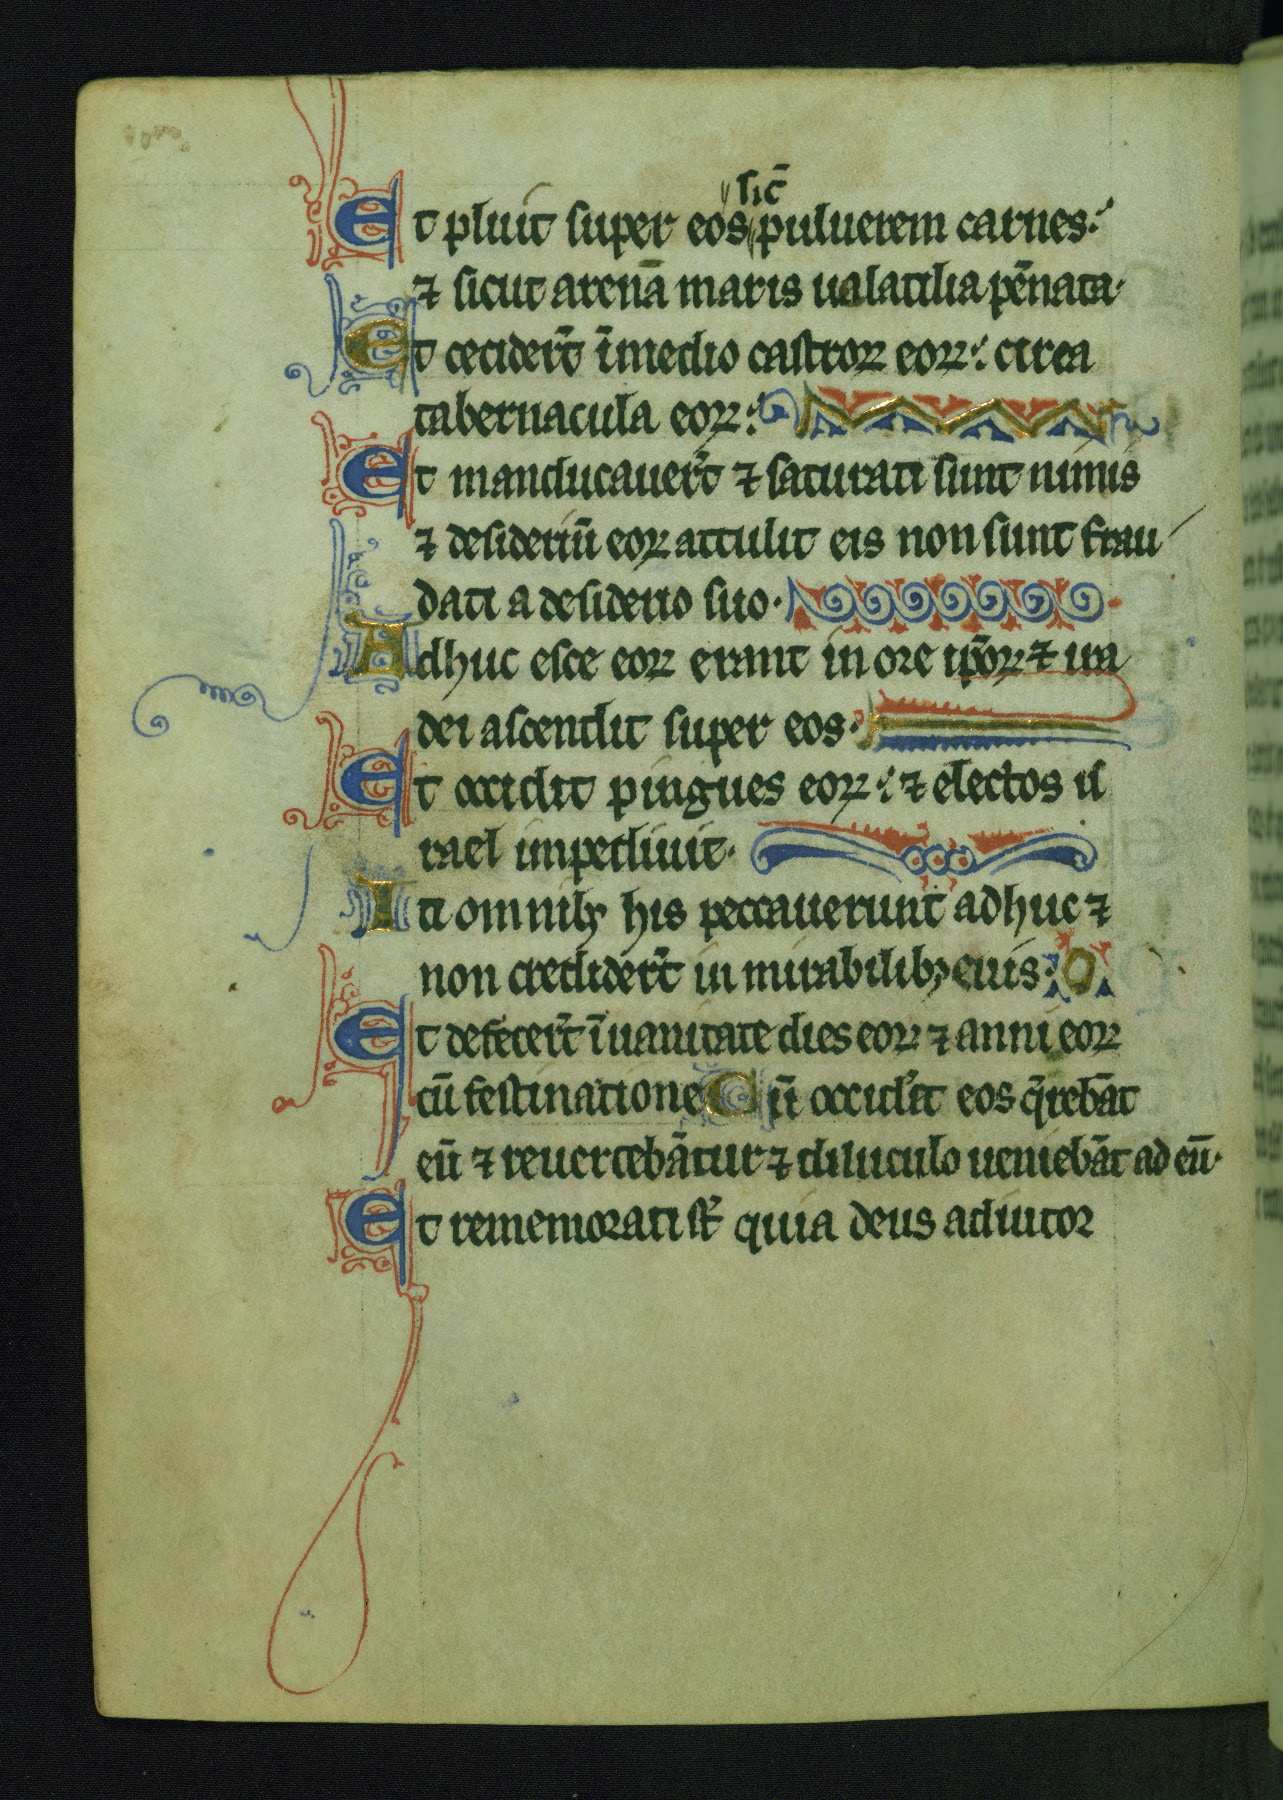 sic̄
Et pluit super eos puluerem carnes:
⁊ sicut arenā maris ualatilia pēnata·
Et cecider̄t ī medio castroꝝ eoꝝ: circa
tabernacula eoꝝ:
Et manducauer̄t ⁊ saturati sunt nimis
⁊ desideriū eoꝝ attulit eis non sunt frau
dati a desiderio suo·
Adhuc esce eoꝝ erant in ore ip̄oꝝ ⁊ ira
dei ascendit super eos·
Et occidit pingues eoꝝ: ⁊ electos is
rael impediuit·
In omnibꝫ his peccauerunt adhuc ⁊
non credider̄t in mirabilibꝫ eius:
Et defecer̄t ī uanitate dies eoꝝ ⁊ anni eoꝝ
cū festinatione Cū occid'et eos q̄rebāt
eū ⁊ reuertebātur ⁊ diluculo ueniebāt ad eū·
Et rememorati st̄ quia deus adiutor